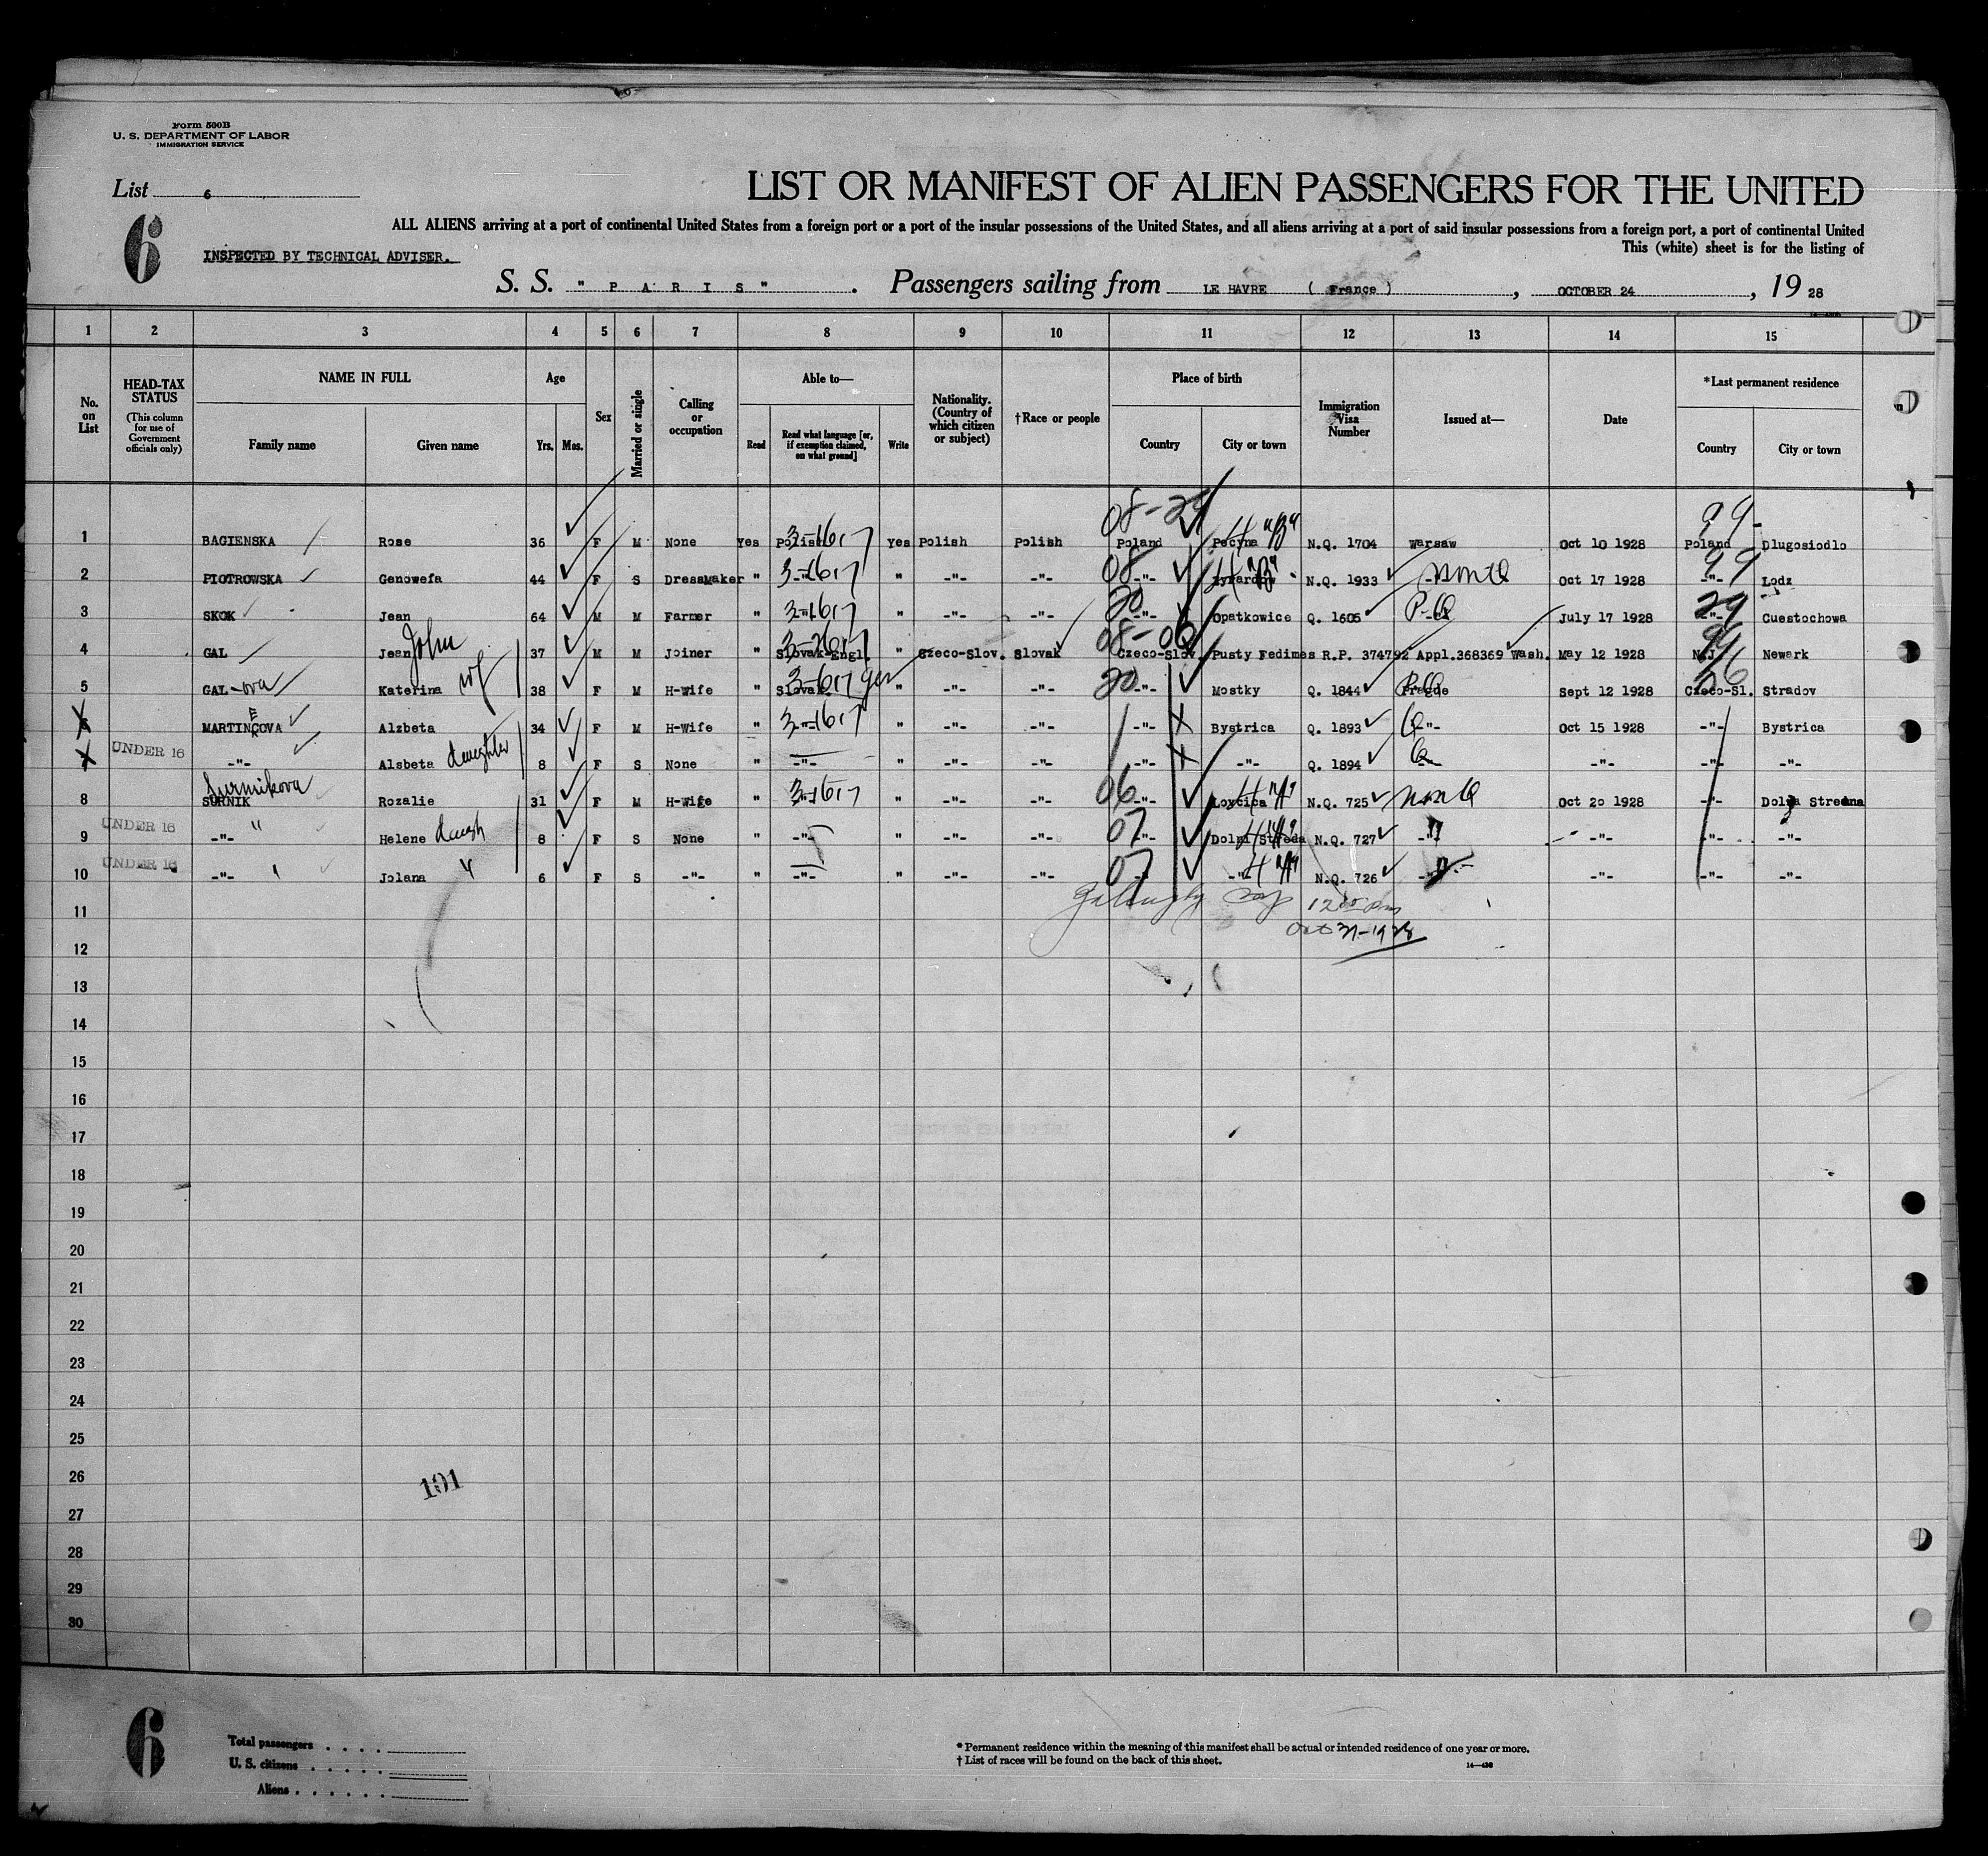 Form 500B
U. S. DEPARTMENT OF LABOR
IMMIGRATION SERVICE
List 6
LIST OR MANIFEST OF ALIEN PASSENGERS FOR THE UNITED
6
ALL ALIENS arriving at a port of continental United States from a foreign port or a port of the insular possessions of the United States, and all aliens arriving at a port of said insular possessions from a foreign port, a port of continental United
INSPECTED BY TECHNICAL ADVISER.
This (white) sheet is for the listing of
S. S. " P A R I S " . Passengers sailing from LE HAVRE ( France ) , OCTOBER 24 , 19 28
1 2 3 4 5 6 7 8 9 10 11 12 13 14 15
No. on List
HEAD-TAX STATUS (This column for use of Government officials only)
NAME IN FULL
Family name Given name
Age
Yrs. Mos.
Sex
Married or single
Calling or occupation
Able to—
Read Read what language [or, if exemption claimed, on what ground] Write
Nationality. (Country of which citizen or subject)
†Race or people
Place of birth
Country City or town
Immigration Visa Number
Issued at—
Date
*Last permanent residence
Country City or town
1 BAGIENSKA Rose 36 F M None Yes Polish 3-1617 Yes Polish Polish Poland Pecyna 4 "B" N.Q. 1704 Warsaw Oct 10 1928 Poland 99- Dlugosiodlo
2 PIOTROWSKA Genowefa 44 F S Dressmaker " -"- 3-1617 " -"- -"- 08 -"- "B" N.Q. 1933 -"- Oct 17 1928 -"- 99 Lodz
3 SKOK Jean 64 M M Farmer " 3-1617 " -"- -"- 20 -"- Opatkowice Q. 1605 P-Q July 17 1928 -"- 29 Cuestochowa
4 GAL Jean John 37 M M Joiner " Slovak-Engl. " Czeco-Slov. Slovak Czeco-Slov. Pusty Fedimes R.P. 374792 Appl.368369 Wash. May 12 1928 N.J. Newark
5 GAL -ova Katerina wf 38 F M H-wife " Slovak 3-617 ger " -"- -"- 20 -"- Mostky Q. 1844 Prague Sept 12 1928 Czeco-Sl. Stradov
6 MARTINCOVA E Alzbeta 34 F M H-wife " 3-1617 " -"- -"- -"- Bystrica Q. 1893 -"- Oct 15 1928 -"- Bystrica
UNDER 16 -"- Alsbeta daughter 8 F S None " -"- " -"- -"- -"- -"- Q. 1894 -"- -"- -"- -"-
8 SURNIK Surnikova Rozalie 31 F M H-wife " 3-1617 " -"- -"- 06 -"- 4 "A" N.Q. 725 Oct 20 1928 -"- Dolna Stredna
UNDER 16
9 -"- " Helene daugh 8 F S None " -"- " -"- -"- 07 -"- Dolni Streda N.Q. 727 -"- -"- -"- -"-
UNDER 16
10 -"- " Jolana " 6 F S -"- " -"- " -"- -"- 07 -"- -"- 4 "A" N.Q. 726 -"- -"- -"- -"-
11
12 00 pm
Oct 31-1928
12
13
14
15
16
17
18
19
20
21
22
23
24
25
26
101
27
28
29
30
6
Total passengers . . . .
U. S. citizens . . . . .
Aliens . . . . . .
* Permanent residence within the meaning of this manifest shall be actual or intended residence of one year or more.
† List of races will be found on the back of this sheet.